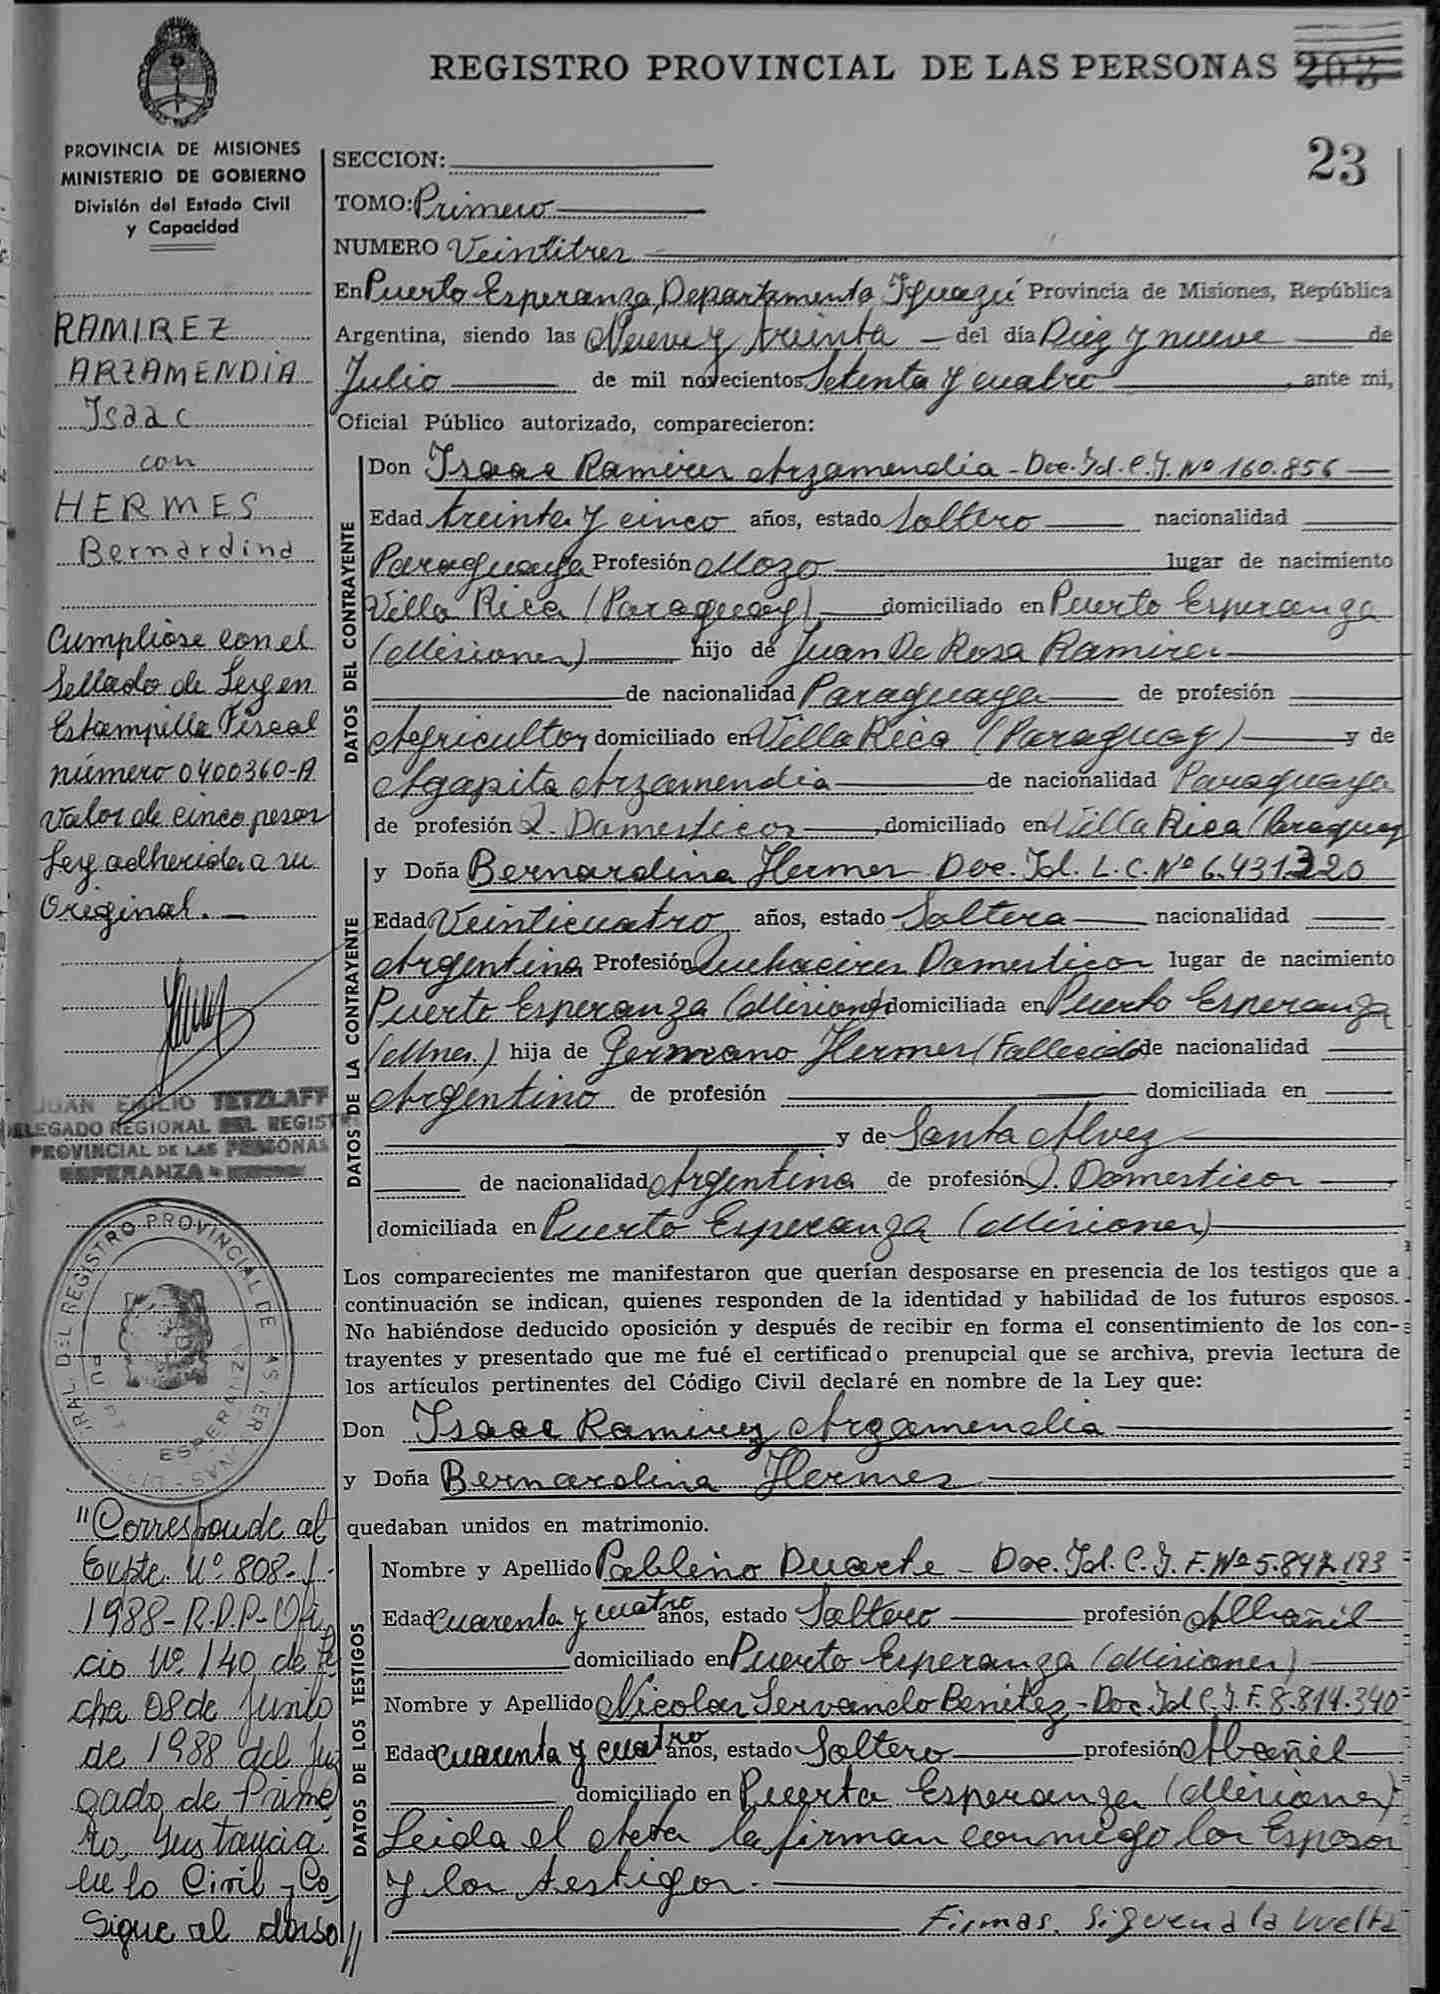 REGISTRO PROVINCIAL DE LAS PERSONAS 203
23
PROVINCIA DE MISIONES
MINISTERIO DE GOBIERNO
División del Estado Civil
y Capacidad
RAMIREZ
ARZAMENDIA
Isaac
con
HERMES
Bernardina
Cumpliose con el
Sellado de Ley en
Estampilla Fiscal
número 0400360-A
Valor de cinco pesos
Ley adherida a su
Original.
JUAN EMILIO TETZLAFF
DELEGADO REGIONAL DEL REGIST
PROVINCIAL DE LAS PERSONAS
ESPERANZA
"Corresponde al
Expte. Nº 808-
1988-R.P.P-Ofi
cio Nº 140 de fe
cha 08 de Junio
de 1988 del Juz
gado de Prime
ra Instancia
en lo Civil y Co
Sigue al dorso //
SECCION:
TOMO: Primero
NUMERO Veintitres
En Puerto Esperanza, Departamento Iguazú Provincia de Misiones, República
Argentina, siendo las Nueve y treinta del día Diez y nueve de
Julio de mil novecientos Setenta y cuatro, ante mi,
Oficial Público autorizado, comparecieron:
DATOS DEL CONTRAYENTE
Don Isaac Ramires Arzamendia - Doc. Id. C.I. Nº 160.856
Edad treinta y cinco años, estado Soltero nacionalidad
Paraguaya Profesión Mozo lugar de nacimiento
Villa Rica (Paraguay) domiciliado en Puerto Esperanza
(Misiones) hijo de Juan De Rosa Ramirez
de nacionalidad Paraguaya de profesión
Agricultor domiciliado en Villa Rica (Paraguay) y de
Agapita Arzamendia de nacionalidad Paraguaya
de profesión Q. Domesticos, domiciliado en Villa Rica (Paraguay
DATOS DE LA CONTRAYENTE
y Doña Bernardina Hermes Doc. Id. L.C. Nº 6.431320
Edad Veinticuatro años, estado Soltera nacionalidad
Argentina Profesión Quehaceres Domesticos lugar de nacimiento
Puerto Esperanza (Misiones) domiciliada en Puerto Esperanza
(Mnes.) hija de Germano Hermes (Fallecido de nacionalidad
Argentino de profesión domiciliada en
y de Santa Alvez
de nacionalidad Argentina de profesión Q. Domesticos
domiciliada en Puerto Esperanza (Misiones)
Los comparecientes me manifestaron que querían desposarse en presencia de los testigos que a
continuación se indican, quienes responden de la identidad y habilidad de los futuros esposos.
No habiéndose deducido oposición y después de recibir en forma el consentimiento de los con-
trayentes y presentado que me fué el certificado prenupcial que se archiva, previa lectura de
los artículos pertinentes del Código Civil declaré en nombre de la Ley que:
Don Isaac Ramirez Arzamendia
y Doña Bernardina Hermes
quedaban unidos en matrimonio.
DATOS DE LOS TESTIGOS
Nombre y Apellido Pableino Duarte - Doc. Id. C.I. F. Nº 5.847.183
Edad cuarenta y cuatro años, estado Soltero profesión Albañil
domiciliado en Puerto Esperanza (Misiones)
Nombre y Apellido Nicolas Servando Benitez - Doc Id C.I.F. 8.814.340
Edad cuarenta y cuatro años, estado Soltero profesión Abañil
domiciliado en Puerto Esperanza (Misiones)
Leida el Acta la firman conmigo los Esposos
y los testigos.
Firmas. Siguen a la vuelta